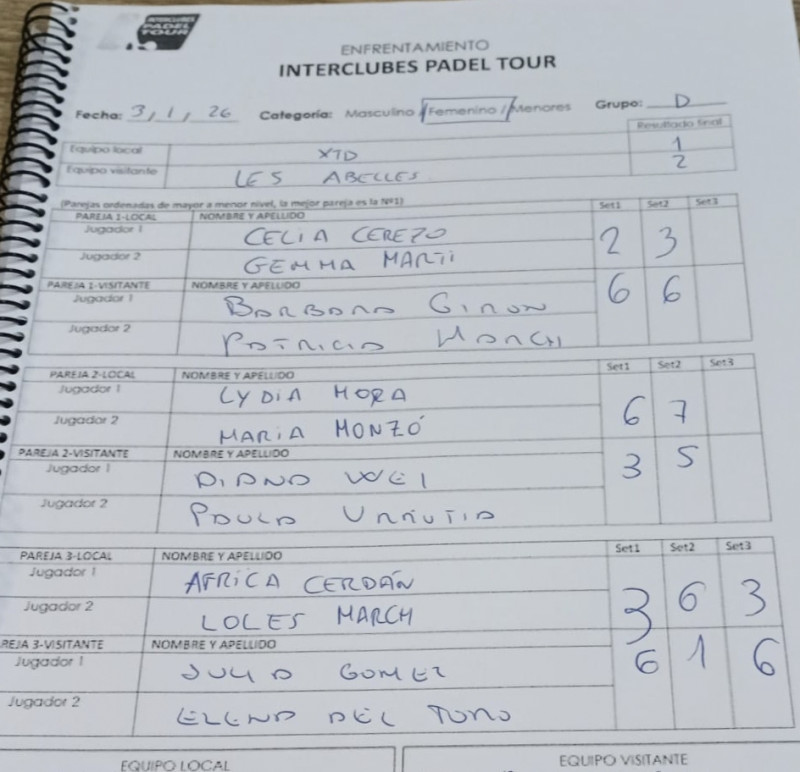 INTERCLUBES
PADEL
TOUR
ENFRENTAMIENTO
INTERCLUBES PADEL TOUR
Fecha: 3, 1, 26 Categoría: Masculino / Femenino / Menores Grupo: D
Resultado final
Equipo local XTD 1
Equipo visitante LES ABELLES 2
(Parejas ordenadas de mayor a menor nivel, la mejor pareja es la Nº1) Set1 Set2 Set3
PAREJA 1-LOCAL NOMBRE Y APELLIDO
Jugador 1 CELIA CEREZO 2 3
Jugador 2 GEMMA MARTI
PAREJA 1-VISITANTE NOMBRE Y APELLIDO
Jugador 1 BARBARA GIRON 6 6
Jugador 2 PATRICIA MARCH
PAREJA 2-LOCAL NOMBRE Y APELLIDO Set1 Set2 Set3
Jugador 1 LYDIA MORA
Jugador 2 MARIA MONZÓ 6 7
PAREJA 2-VISITANTE NOMBRE Y APELLIDO
Jugador 1 DIANA WEI 3 5
Jugador 2 PAULA URRUTIA
PAREJA 3-LOCAL NOMBRE Y APELLIDO Set1 Set2 Set3
Jugador 1 AFRICA CERDÁN
Jugador 2 LOLES MARCH 3 6 3
REJA 3-VISITANTE NOMBRE Y APELLIDO
Jugador 1 JULIA GOMEZ 6 1 6
Jugador 2 ELENA DEL TORO
EQUIPO LOCAL EQUIPO VISITANTE